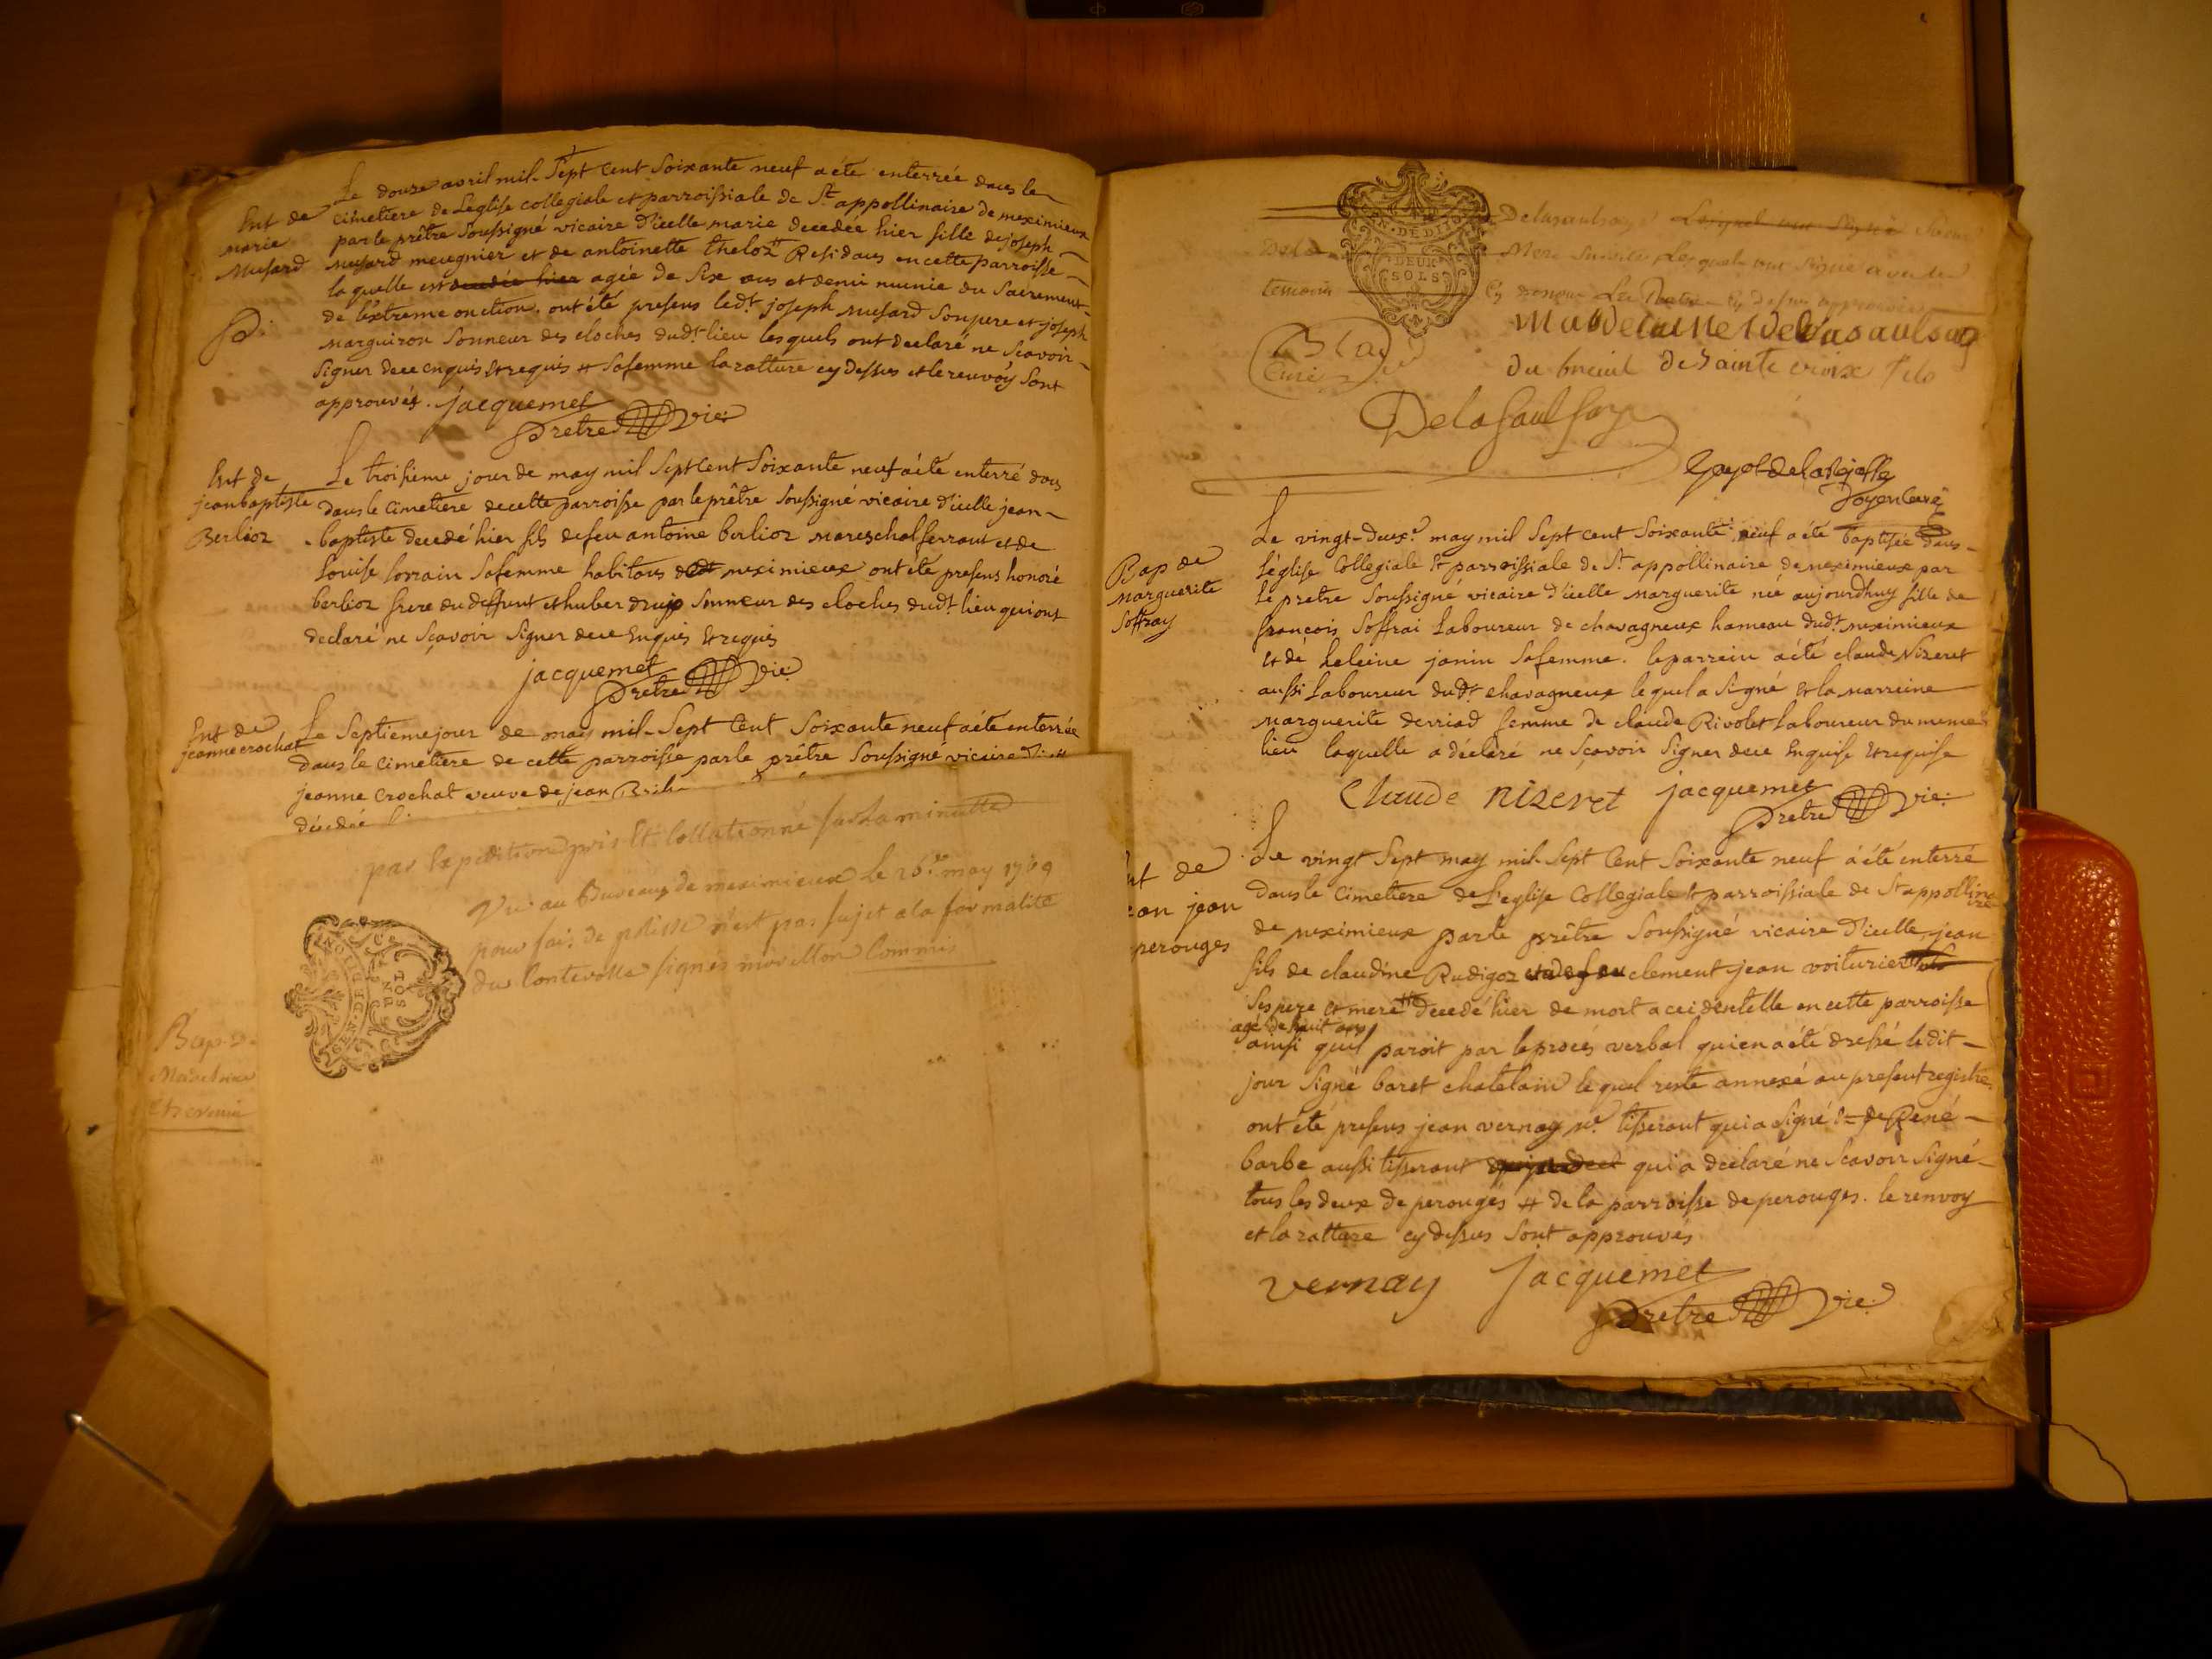 Ent de
marie
Musard
Le douze avril mil Sept Cent Soixante neuf a été enterrée dans le
Cimetiere de Leglise collegiale et parroissiale de St appollinaire de meximieux
par le prêtre Soussigné vicaire d'icelle marie decedée hier fille de joseph
musard meugnier et de antoinette theloz # Residans en cette parroisse
la quelle est decedée hier agée de Six ans et demi munie du Sacrement
de l'extreme onction. ont été presens ledt. joseph musard Son pere et joseph
marguiron Sonneur des cloches dudt. lieu lesquels ont declaré ne Scavoir
Signer de ce enquis et requis # Safemme la ratture cy dessus et le renvoy Sont
approuvés. jacquemet
Pretre vic:
Ent de
jean baptiste
Berlioz
Le troisieme jour de may mil Sept Cent Soixante neuf a été enterré dans
dans le Cimetiere de cette parroisse par le prêtre Soussigné vicaire d'icelle jean
baptiste decedé hier fils de feu antoine berlioz mareschal ferrant et de
Louise lorrain Safemme habitans meximieux ont été presens honoré
berlioz frere du deffunt et huber Sonneur des cloches dudt. lieu qui ont
declaré ne Sçavoir Signer de ce Enquis et requis
jacquemet
Pretre vic:
Ent de
jeanne crochat
Le Septieme jour de may mil Sept Cent Soixante neuf a été enterrée
dans le Cimetiere de cette parroisse par le prêtre Soussigné vicaire
jeanne Crochat veuve de jean
décedée
par Expedition pris Et Collationné sur la minutte
Vu au Bureau de meximieux le 26 may 1769
pour fait de polisse n'est pas sujet a la formalité
du Contrôlle signés Commis
GEN. DEDITION
SOLS
Bap de
DEUX
SOLS
Delasaulsaye Lesquels ont Signé
Mere lesquels ont signé avec les
temoins
cy dessus approuvés
Curé
du breuil de Sainte croix
Delasaulsaye
Doyen Curé
Bap de
Marguerite
Soffray
Le vingt-deuxe. may mil Sept Cent Soixante neuf a été Baptisée dans
L'église Collegiale et parroissiale de St. appollinaire de meximieux par
Le pretre Soussigné vicaire d'icelle Marguerite née aujourdhuy fille de
françois Soffrai Laboureur de chavagneux hameau dudt. meximieux
et de heleine janin Safemme. le parrein a été claude Nizeret
aussi Laboureur dudt. chavagneux lequel a Signé et la marreine
Marguerite derriad femme de claude Rivolet Laboureur du meme
lieu laquelle a déclaré ne Sçavoir Signer de ce Enquise et requise
Claude nizeret jacquemet
Pretre vic:
Ent de
jean jean
perouges
Le vingt Sept may mil Sept Cent Soixante neuf a été enterré
dans le Cimetiere de L'eglise Collegiale et parroissiale de St appollinaire
de meximieux par le prêtre Soussigné vicaire d'icelle jean
fils de claudine Rudigoz clement jean voiturier
Ses pere et mere # decedé hier de mort accidentelle en cette parroisse
agé de huit ans
ainsi quil paroit par le procés verbal qui en a été dressé ledit
jour Signé baret chatelain lequel reste annexé au present registre
ont été presens jean vernay tisserant qui a Signé et René
barbe aussi tisserant qui a declaré ne Scavoir Signé
tous les deux de perouges # de la parroisse de perouges. le renvoy
et la ratture cy dessus Sont approuvés
vernay jacquemet
Pretre vic: